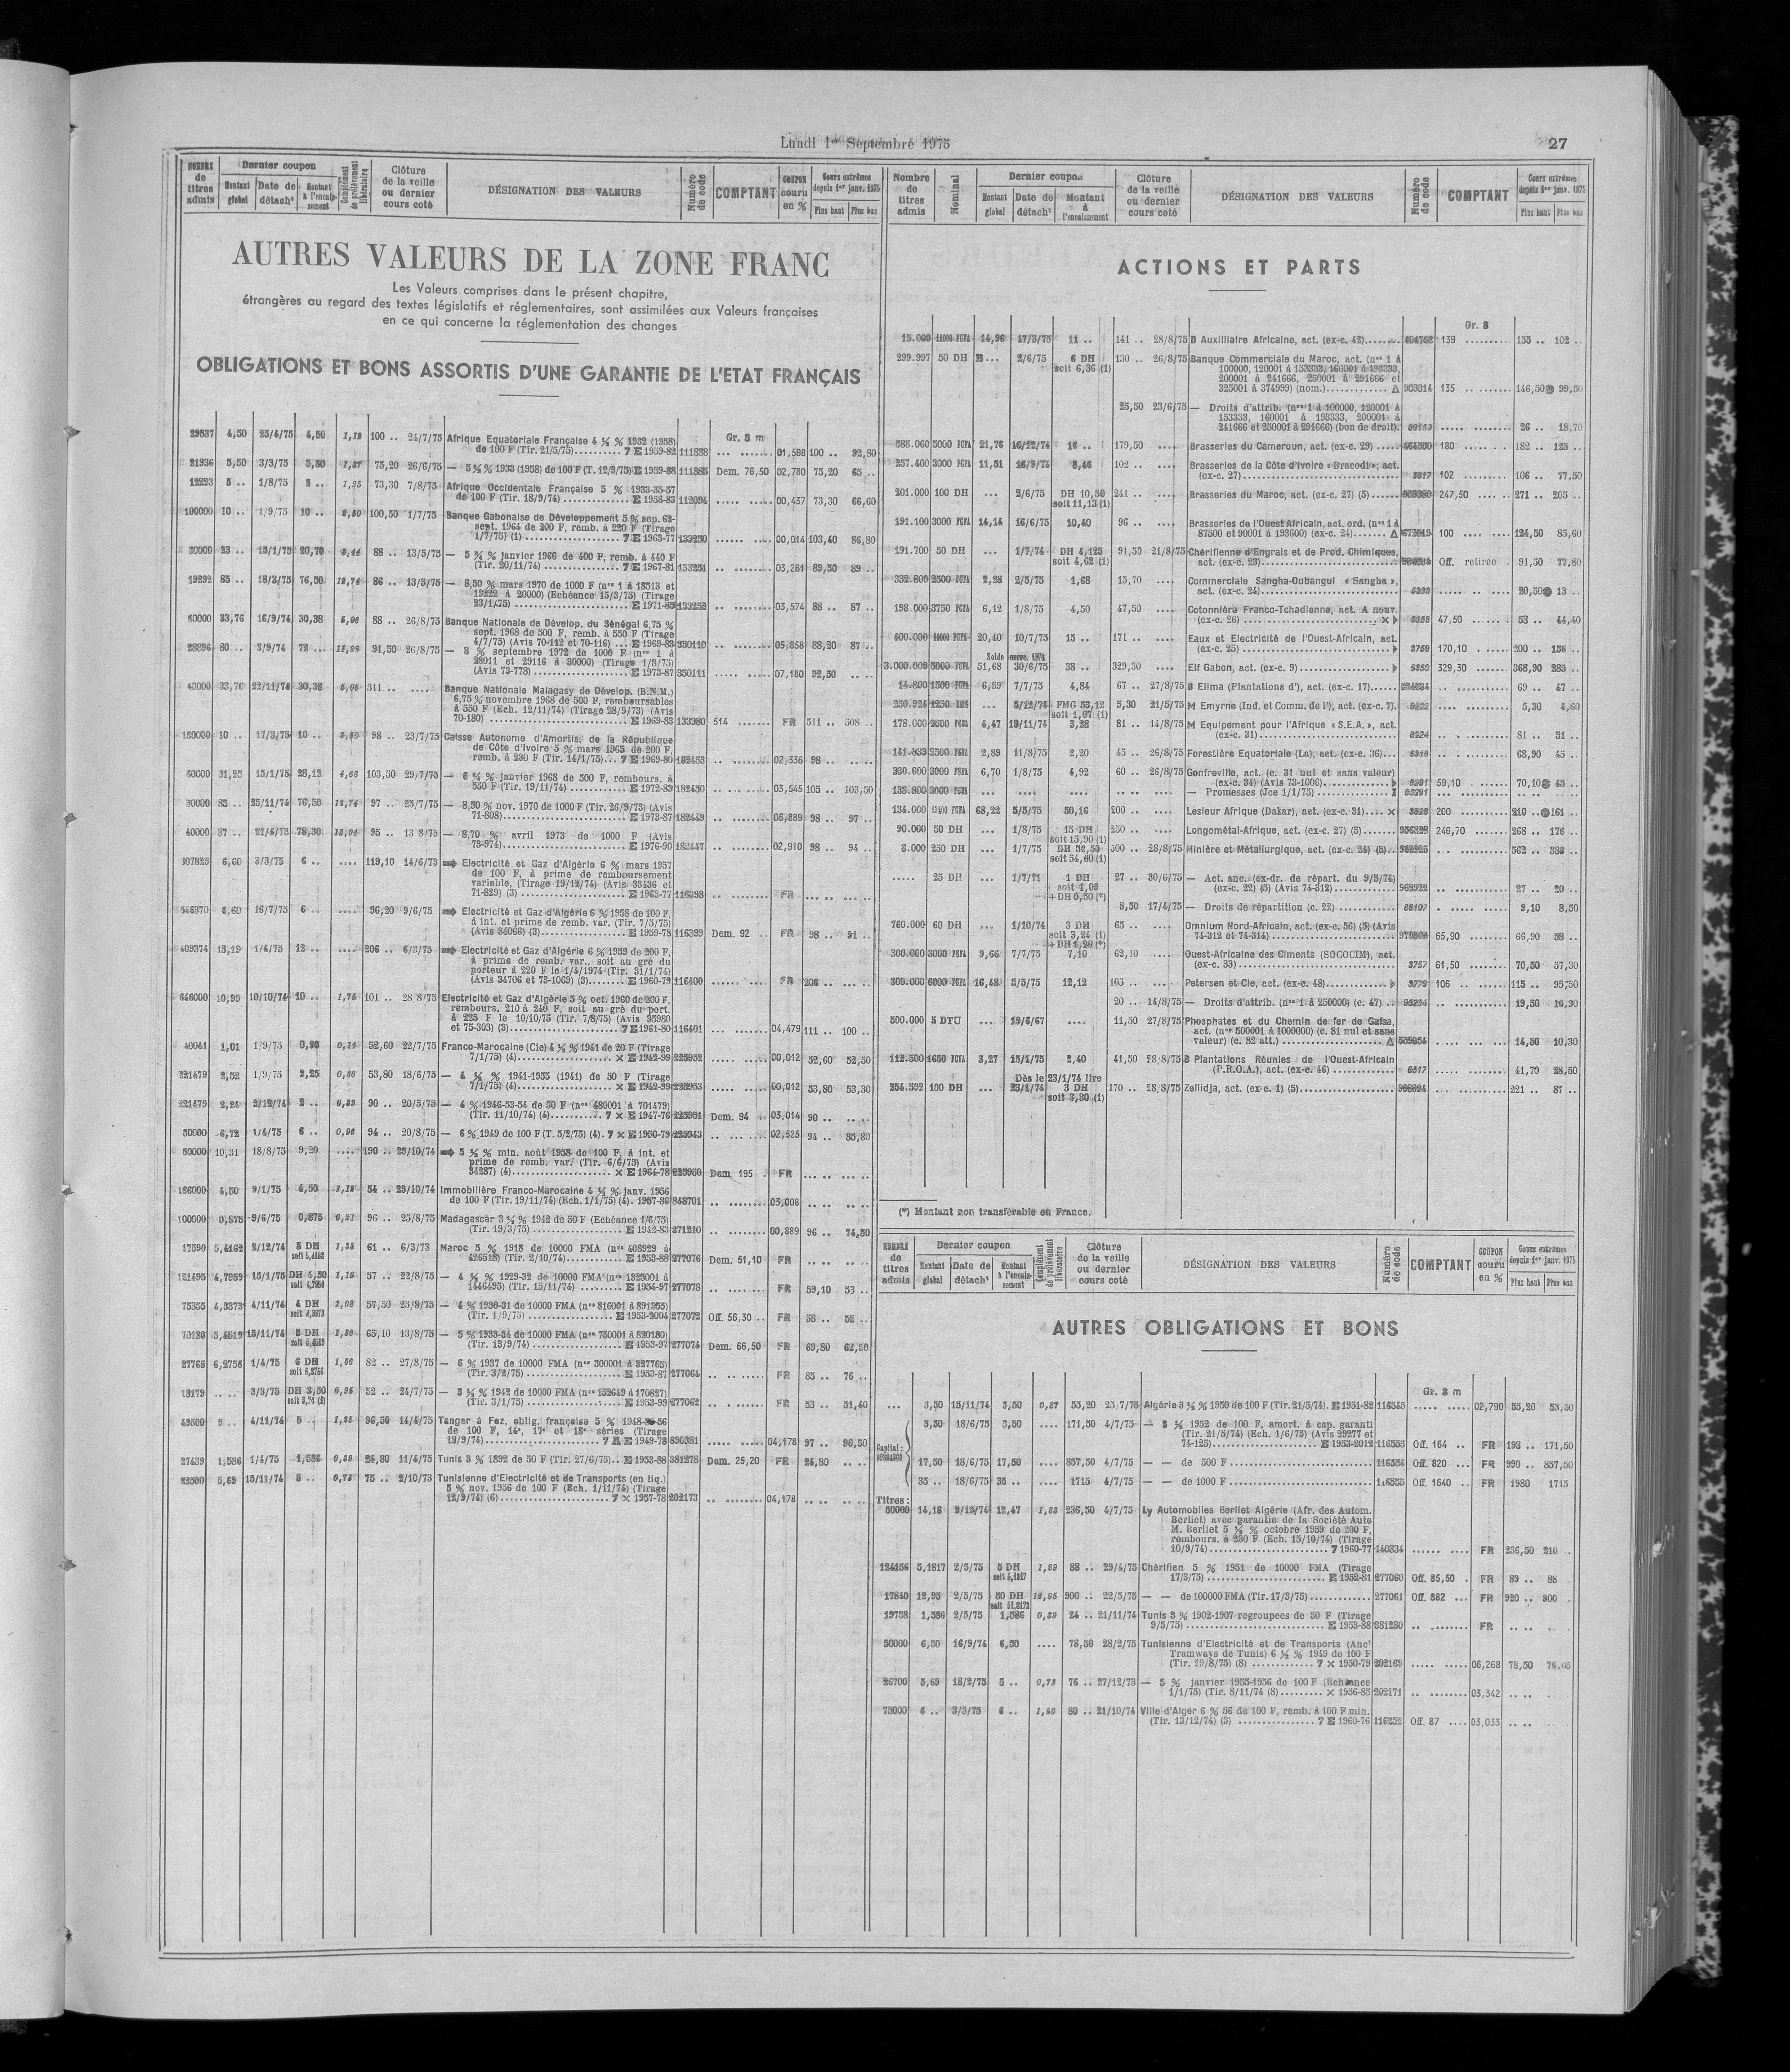 Lundi 1er Septembre 1975
27
NOMBRE de titres admis
Dernier coupon
Montant global
Date de détacht
Montant à l'encaissement
Complément de prélèvement libératoire
Clôture de la veille ou dernier cours coté
DÉSIGNATION DES VALEURS
Numéro de code
COMPTANT
COUPON couru en %
Cours extrêmes depuis 1er janv. 1975
Plus haut
Plus bas
AUTRES VALEURS DE LA ZONE FRANC
Les Valeurs comprises dans le présent chapitre,
étrangères au regard des textes législatifs et réglementaires, sont assimilées aux Valeurs françaises
en ce qui concerne la réglementation des changes
OBLIGATIONS ET BONS ASSORTIS D'UNE GARANTIE DE L'ETAT FRANÇAIS
Gr. 8 m
29537 4,50 25/4/75 4,50 100 .. 24/7/75 Afrique Equatoriale Française 4 ½ % 1952 (1958)
de 100 F (Tir. 21/5/75) 7 E 1959-82 111838 01,598 100 .. 92,80
21936 5,50 3/3/75 5,50 75,20 26/6/75 — 5 ½ % 1933 (1958) de 100 F (T. 12/3/75) E 1959-88 111885 Dem. 76,50 02,780 75,20 65 ..
12223 5 .. 1/8/75 5 .. 1,25 73,30 7/8/75 Afrique Occidentale Française 5 % 1933-35-57
de 100 F (Tir. 18/9/74) E 1958-83 112094 00,437 73,30 66,60
100000 10 .. 1/9/75 10 .. 100,50 1/7/75 Banque Gabonaise de Développement 5 % sep. 63-
sept. 1964 de 200 F, remb. à 220 F (Tirage
1/7/75) (1) 7 E 1963-77 133250 00,014 103,40 86,80
30000 23 .. 15/1/75 20,70 88 .. 13/5/75 — 5 ¾ % janvier 1966 de 400 F, remb. à 440 F
(Tir. 20/11/74) 7 E 1967-81 133251 03,261 89,50 89 ..
19292 85 .. 18/3/75 76,50 86 .. 13/5/75 — 8,50 % mars 1970 de 1000 F (nos 1 à 18513 et
19222 à 20000) (Echéance 15/3/75) (Tirage
23/1/75) E 1971-85 133252 03,574 88 .. 87 ..
60000 33,76 16/9/74 30,38 88 .. 26/8/75 Banque Nationale de Dévelop. du Sénégal 6,75 %
sept. 1968 de 500 F, remb. à 550 F (Tirage
4/7/75) (Avis 70-112 et 70-116) E 1969-83 350110 05,858 88,20 87 ..
28896 80 .. 3/9/74 72 .. 91,50 26/8/75 — 8 % septembre 1972 de 1000 F (nos 1 à
28011 et 29116 à 30000) (Tirage 1/8/75)
(Avis 73-778) E 1973-87 350111 07,180 92,50
40000 33,76 22/11/74 30,38 511 .. Banque Nationale Malagasy de Dévelop. (B.N.M.)
6,75 % novembre 1968 de 500 F, remboursables
à 550 F (Ech. 12/11/74) (Tirage 28/9/73) (Avis
70-180) E 1969-83 133380 514 FR 511 .. 508 ..
150000 10 .. 17/3/75 10 .. 98 .. 23/7/75 Caisse Autonome d'Amortis. de la République
de Côte d'Ivoire 5 % mars 1965 de 200 F,
remb. à 230 F (Tir. 14/1/75) 7 E 1969-80 182453 02,336 98 ..
60000 31,25 15/1/75 28,12 103,50 29/7/75 — 6 ¼ % janvier 1968 de 500 F, rembours. à
550 F (Tir. 19/11/74) E 1972-89 182450 03,545 105 .. 103,50
30000 85 .. 25/11/74 76,50 97 .. 25/7/75 — 8,50 % nov. 1970 de 1000 F (Tir. 26/9/73) (Avis
71-808) E 1973-87 182449 05,889 98 .. 97 ..
40000 87 .. 21/4/75 78,30 95 .. 13 8/75 — 8,70 % avril 1973 de 1000 F (Avis
73-974) E 1976-90 182447 02,910 98 .. 94 ..
307825 6,60 3/3/75 6 .. 119,10 14/6/73 Electricité et Gaz d'Algérie 6 % mars 1957
de 100 F, à prime de remboursement
variable, (Tirage 19/12/74) (Avis 33436 et
71-829) (3) E 1963-77 116398 FR
646370 6,60 16/7/75 6 .. 96,20 9/6/75 Electricité et Gaz d'Algérie 6 % 1958 de 100 F,
à int. et prime de remb. var. (Tir. 7/5/75)
(Avis 34066) (3) E 1959-78 116399 Dem. 92 FR 98 .. 91 ..
409374 13,19 1/4/75 12 .. 206 .. 6/3/75 Electricité et Gaz d'Algérie 6 % 1959 de 200 F,
à prime de remb. var., soit au gré du
porteur à 220 F le 1/4/1974 (Tir. 31/1/74)
(Avis 34706 et 73-1069) (3) E 1960-79 116400 FR 206
646000 10,99 10/10/74 10 .. 1,75 101 .. 28 8/75 Electricité et Gaz d'Algérie 5 % oct. 1960 de 200 F,
rembours. 210 à 240 F, soit au gré du port.
à 225 F le 10/10/75 (Tir. 7/8/75) (Avis 35980
et 75-303) (3) 7 E 1961-80 116401 04,479 111 .. 100 ..
40041 1,01 1/9/75 0,90 52,60 22/7/75 Franco-Marocaine (Cie) 4 ½ % 1941 de 20 F (Tirage
7/1/75) (4) × E 1942-99 225952 00,012 52,60 52,50
221479 2,52 1/9/75 2,25 53,80 18/6/75 — 4 ½ % 1941-1955 (1941) de 50 F (Tirage
7/1/75) (4) × E 1942-99 225953 00,012 53,80 53,30
221479 2,24 2/12/74 2 .. 90 .. 20/5/75 — 4 % 1946-53-54 de 50 F (nos 480001 à 701479)
(Tir. 11/10/74) (4) 7 × E 1947-76 225951 Dem. 94 03,014 90 ..
50000 6,72 1/4/75 6 .. 94 .. 20/8/75 — 6 % 1949 de 100 F (T. 5/2/75) (4). 7 × E 1950-79 225943 02,525 94 .. 85,80
50000 10,31 18/8/75 9,20 190 .. 23/10/74 5 ½ % min. août 1958 de 100 F, à int. et
prime de remb. var. (Tir. 6/6/75) (Avis
34287) (4) × E 1964-78 225950 Dem 195 FR
166000 4,50 9/1/75 4,50 54 .. 23/10/74 Immobilière Franco-Marocaine 4 ½ % janv. 1956
de 100 F (Tir. 19/11/74) (Ech. 1/1/75) (4). 1957-86 848701 03,008
100000 0,875 9/6/75 0,875 96 .. 25/8/75 Madagascar 3 ½ % 1942 de 50 F (Echéance 1/6/75)
(Tir. 19/3/75) E 1942-83 271210 00,889 96 .. 74,50
17590 5,4162 2/12/74 5 DH 61 .. 6/3/73 Maroc 5 % 1918 de 10000 FMA (nos 408929 à
426518) (Tir. 2/10/74) E 1953-88 277076 Dem. 51,10 FR
121495 4,7959 15/1/75 DH 4,50 57 .. 22/8/75 — 4 ½ % 1929-32 de 10000 FMA (nos 1325001 à
1446495) (Tir. 15/11/74) E 1954-97 277078 FR 59,10 53 ..
75355 4,3373 4/11/74 4 DH 57,50 25/8/75 — 4 % 1930-31 de 10000 FMA (nos 816001 à 891355)
(Tir. 1/9/75) E 1953-2004 277072 Off. 56,30 FR 58 .. 52 ..
70180 5,4519 15/11/74 5 DH 65,10 13/8/75 — 5 % 1933-34 de 10000 FMA (nos 750001 à 820180)
(Tir. 13/9/74) E 1953-97 277074 Dem. 66,50 FR 69,80 62,50
27765 6,2756 1/4/75 6 DH 82 .. 27/8/75 — 6 % 1937 de 10000 FMA (nos 300001 à 327765)
(Tir. 3/2/75) E 1953-87 277064 FR 85 .. 76 ..
18179 .. .. 3/3/75 DH 3,50 52 .. 24/7/75 — 3 ½ % 1942 de 10000 FMA (nos 152649 à 170827)
(Tir. 3/1/75) E 1953-99 277062 FR 53 .. 51,40
49500 5 .. 4/11/74 5 .. 96,50 14/4/75 Tanger à Fez, oblig. française 5 % 1948-56
de 100 F, 14e, 17e et 18e séries (Tirage
18/9/74) E 1949-78 890381 04,178 97 .. 96,50
27439 1,586 1/4/75 1,586 24,80 11/4/75 Tunis 3 % 1892 de 50 F (Tir. 27/6/75) E 1953-88 381278 Dem. 25,20 FR 24,80
23500 5,69 15/11/74 5 .. 75 .. 2/10/73 Tunisienne d'Electricité et de Transports (en liq.)
5 % nov. 1956 de 100 F (Ech. 1/11/74) (Tirage
12/9/74) (6) 7 × 1957-78 202173 04,178
Nombre de titres admis
Nominal
Dernier coupon
Montant global
Date de détacht
Montant à l'encaissement
Clôture de la veille ou dernier cours coté
DÉSIGNATION DES VALEURS
Numéro de code
COMPTANT
Cours extrêmes depuis 1er janv. 1975
Plus haut
Plus bas
ACTIONS ET PARTS
Gr. 8
15.000 14,96 17/3/75 11 .. 141 .. 28/8/75 B Auxiliaire Africaine, act. (ex-c. 42) 139 155 .. 102 ..
299.997 50 DH B... 2/6/75 6 DH 130 .. 26/8/75 Banque Commerciale du Maroc, act. (nos 1 à
soit 6,36 (1) 100000, 120001 à 153333, 160001 à 193333,
200001 à 241666, 250001 à 291666 et
325001 à 374999) (nom.) Δ 959314 135 146,50 99,50
25,50 23/6/75 — Droits d'attrib. (nos 1 à 100000, 120001 à
153333, 160001 à 193333, 200001 à
241666 et 250001 à 291666) (bon de droit). 26 .. 18,70
588.060 5000 FCFA 21,76 16/12/74 16 .. 179,50 Brasseries du Cameroun, act. (ex-c. 29) 180 182 .. 125 ..
257.400 3000 FCFA 11,51 16/9/74 8,46 102 .. Brasseries de la Côte d'Ivoire « Bracodi », act.
(ex-c. 27) 102 106 .. 77,50
201.000 100 DH ... 2/6/75 DH 10,50 241 .. Brasseries du Maroc, act. (ex-c. 27) (5) 247,50 271 .. 205 ..
soit 11,13 (1)
191.100 3000 FCFA 14,14 16/6/75 10,40 96 .. Brasseries de l'Ouest Africain, act. ord. (nos 1 à
87500 et 90001 à 193600) (ex-c. 24) Δ 100 124,50 85,60
191.700 50 DH ... 1/7/74 DH 4,125 91,50 21/8/75 Chérifienne d'Engrais et de Prod. Chimiques,
soit 4,62 (1) act. (ex-c. 23) Off. retirée 91,50 77,80
332.800 2500 FCFA 2,28 2/5/75 1,68 15,70 Commerciale Sangha-Oubangui « Sangha »,
act. (ex-c. 24) 20,50 13 ..
198.000 3750 FCFA 6,12 1/8/75 4,50 47,50 Cotonnière Franco-Tchadienne, act. A nouv.
(ex-c. 26) 47,50 53 .. 44,40
400.000 20,40 10/7/75 15 .. 171 .. Eaux et Electricité de l'Ouest-Africain, act.
(ex-c. 25) 3759 170,10 200 ..
Solde exerc. 1974
3.000.000 5000 FCFA 51,68 30/6/75 38 .. 329,30 Elf Gabon, act. (ex-c. 9) 329,30 368,90 285 ..
14.800 1500 FCFA 6,59 7/7/75 4,84 67 .. 27/8/75 B Elima (Plantations d'), act. (ex-c. 17) 69 .. 47 ..
250.924 ... 5/12/74 FMG 53,12 5,30 21/5/75 M Emyrne (Ind. et Comm. de l'), act. (ex-c. 7). 5,30 4,60
soit 1,07 (1)
178.000 2600 FCFA 4,47 19/11/74 3,28 81 .. 14/8/75 M Equipement pour l'Afrique « S.E.A. », act.
(ex-c. 31) 81 .. 51 ..
141.333 2500 FCFA 2,89 11/8/75 2,20 45 .. 26/8/75 Forestière Equatoriale (La), act. (ex-c. 36) 68,90 45 ..
330.600 3000 FCFA 6,70 1/8/75 4,92 60 .. 26/8/75 Gonfreville, act. (c. 31 nul et sans valeur)
(ex-c. 34) (Avis 73-1006) 59,10 70,10 45 ..
138.800 3000 FCFA — Promesses (Jce 1/1/75)
134.000 68,22 5/5/75 50,16 200 .. Lesieur Afrique (Dakar), act. (ex-c. 31) × 200 210 .. 161 ..
90.000 50 DH ... 1/8/75 15 DH 250 .. Longométal-Afrique, act. (ex-c. 27) (5) 956328 246,70 268 .. 176 ..
soit 15,90 (1)
8.000 250 DH ... 1/7/75 DH 52,50 500 .. 28/8/75 Minière et Métallurgique, act. (ex-c. 24) (5) 562 ..
soit 54,60 (1)
25 DH ... 1/7/71 1 DH 27 .. 30/6/75 — Act. anc. (ex-dr. de répart. du 9/5/74)
soit 1,09 (ex-c. 22) (5) (Avis 74-312) 962922 27 .. 20 ..
+DH 0,50 (*)
8,50 17/4/75 — Droits de répartition (c. 22) 9,10 8,50
760.000 60 DH ... 1/10/74 3 DH 65 .. Omnium Nord-Africain, act. (ex-c. 56) (5) (Avis
soit 3,24 (1) 74-312 et 74-314) 65,90 66,90 58 ..
+DH 1,20 (*)
300.000 3000 FCFA 9,66 7/7/75 7,10 62,10 Ouest-Africaine des Ciments (SOCOCIM), act.
(ex-c. 33) 3757 61,50 70,50 57,30
300.000 6000 FCFA 16,48 5/5/75 12,12 105 .. Petersen et Cie, act. (ex-c. 48) 3779 106 115 .. 95,50
20 .. 14/8/75 — Droits d'attrib. (nos 1 à 250000) (c. 47) 19,50 16,30
500.000 5 DTU ... 19/6/67 .... 11,50 27/8/75 Phosphates et du Chemin de fer de Gafsa,
act. (nos 500001 à 1000000) (c. 81 nul et sans
valeur) (c. 82 att.) Δ 14,50 10,30
112.500 1650 FCFA 3,27 15/1/75 2,40 41,50 28/8/75 B Plantations Réunies de l'Ouest-Africain
(P.R.O.A.), act. (ex-c. 46) 41,70 28,50
Dès le 23/1/74 lire
254.592 100 DH ... 23/1/74 3 DH 170 .. 28/8/75 Zellidja, act. (ex-c. 1) (5) 221 .. 87 ..
soit 3,30 (1)
(*) Montant non transférable en France.
NOMBRE de titres admis
Dernier coupon
Montant global
Date de détacht
Montant à l'encaissement
Complément de prélèvement libératoire
Clôture de la veille ou dernier cours coté
DÉSIGNATION DES VALEURS
Numéro de code
COMPTANT
COUPON couru en %
Cours extrêmes depuis 1er janv. 1975
Plus haut
Plus bas
AUTRES OBLIGATIONS ET BONS
Gr. 8 m
... 3,50 15/11/74 3,50 0,87 55,20 25 7/75 Algérie 3 ½ % 1950 de 100 F (Tir. 21/5/74). E 1951-82 116545 02,790 55,20 53,50
Capital :
3,50 18/6/75 3,50 .... 171,50 4/7/75 — 3 ½ 1952 de 100 F, amort. à cap. garanti
(Tir. 21/5/74) (Ech. 1/6/75) (Avis 29277 et
74-125) E 1953-2012 116553 Off. 164 FR 195 .. 171,50
17,50 18/6/75 17,50 .... 857,50 4/7/75 — — de 500 F 116554 Off. 820 FR 990 .. 857,50
35 .. 18/6/75 35 .. .... 1715 4/7/75 — — de 1000 F 116555 Off. 1640 FR 1980 1715
Titres :
50000 14,18 2/12/74 12,47 236,50 4/7/75 Ly Automobiles Berliet Algérie (Afr. des Autom.
Berliet) avec garantie de la Société Auto
M. Berliet 5 ½ % octobre 1959 de 200 F,
rembours. à 250 F (Ech. 15/10/74) (Tirage
10/9/74) 7 1960-77 140834 FR 236,50 210
124156 5,1817 2/5/75 5 DH 88 .. 29/4/75 Chérifien 5 % 1951 de 10000 FMA (Tirage
17/3/75) E 1952-81 277060 Off. 85,50 FR 89 .. 88
17840 12,95 2/5/75 50 DH 12,95 900 .. 22/5/75 — — de 100000 FMA (Tir. 17/3/75) 277061 Off. 882 FR 920 .. 900
19758 1,586 2/5/75 1,586 0,39 24 .. 21/11/74 Tunis 3 % 1902-1907 regroupées de 50 F (Tirage
9/5/75) E 1953-88 381280 FR
50000 6,50 16/9/74 6,50 .... 78,50 28/2/75 Tunisienne d'Electricité et de Transports (Anct
Tramways de Tunis) 6 ½ % 1949 de 100 F
(Tir. 29/8/75) (8) 7 × 1950-79 202169 06,268 78,50
26700 5,69 18/2/75 5 .. 0,73 76 .. 27/12/73 — 5 % janvier 1955-1956 de 100 F (Echéance
1/1/75) (Tir. 8/11/74 (8) × 1956-85 202171 03,342
75000 6 .. 3/3/75 6 .. 80 .. 21/10/74 Ville d'Alger 6 % 56 de 100 F, remb. à 100 F min.
(Tir. 13/12/74) (3) 7 E 1960-76 116252 Off. 87 03,033